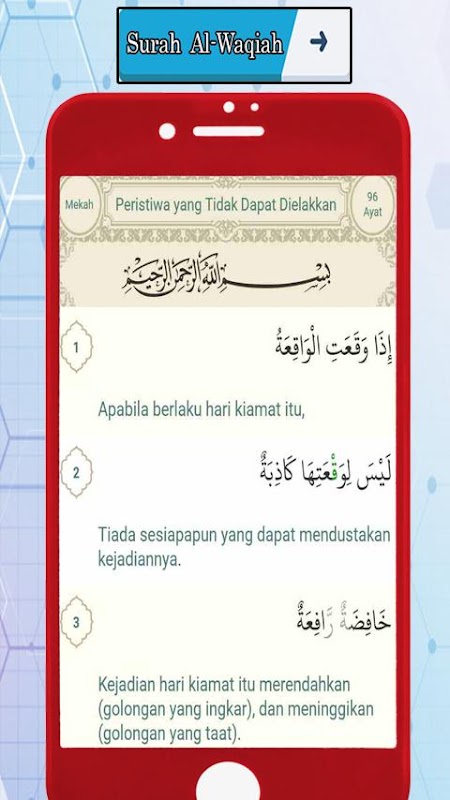 Surah Al-Waqiah
Mekah
Peristiwa yang Tidak Dapat Dielakkan
96
Ayat
بِسْمِ اللَّهِ الرَّحْمَنِ الرَّحِيمِ
1
إِذَا وَقَعَتِ الْوَاقِعَةُ
Apabila berlaku hari kiamat itu,
2
لَيْسَ لِوَقْعَتِهَا كَاذِبَةٌ
Tiada sesiapapun yang dapat mendustakan
kejadiannya.
3
خَافِضَةٌ رَّافِعَةٌ
Kejadian hari kiamat itu merendahkan
(golongan yang ingkar), dan meninggikan
(golongan yang taat).